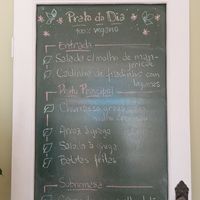 Prato do Dia
100% vegano
Entrada
Salada c/molho de man-
jericão
Caldinho de feijãozinho com
legumes
Prato Principal
Churrasco grego de
Arroz à grega
Salada à grega
Batatas fritas
Sobremesa